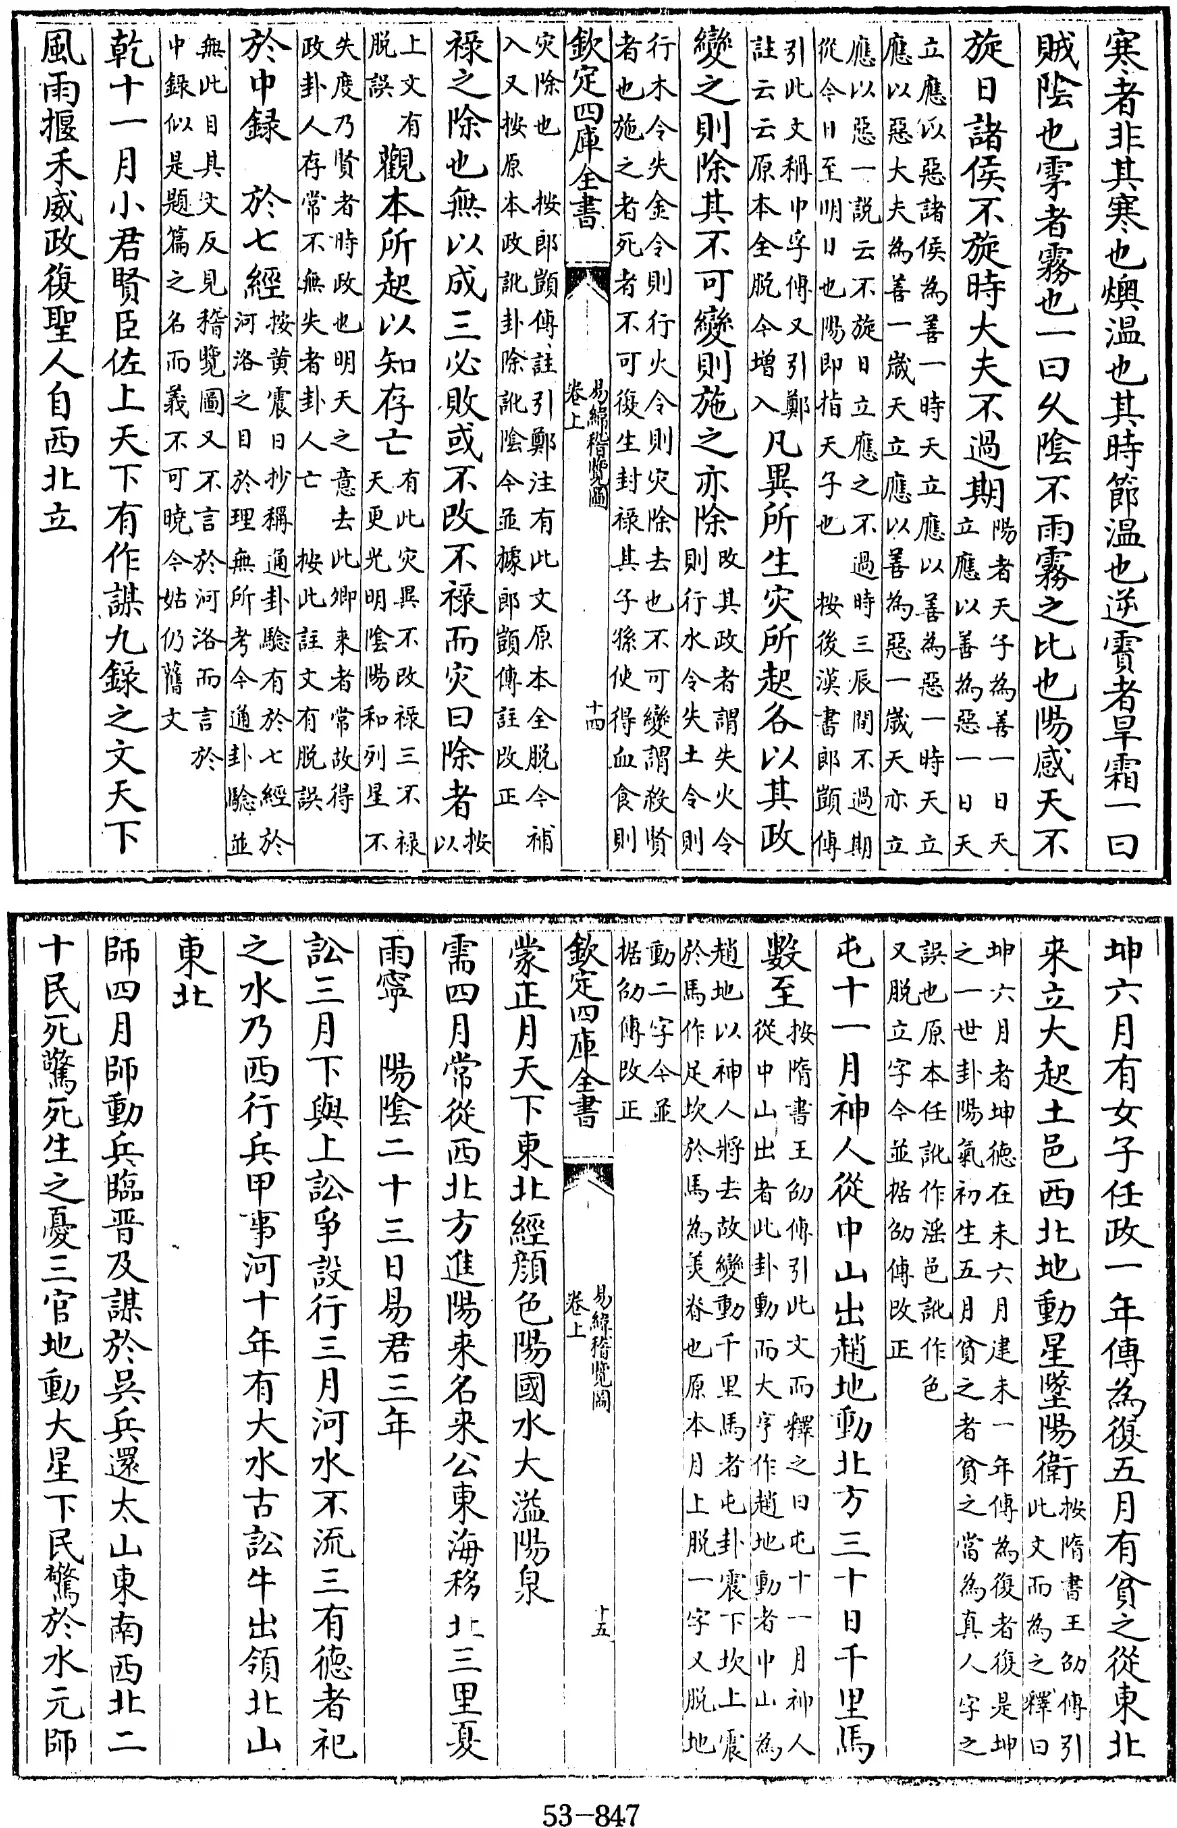 寒者非其寒也燠温也其時節温也逆賓者旱霜一曰
賊陰也雺者霧也一曰久陰不雨霧之比也陽感天不
旋日諸侯不旋時大夫不過期陽者天子為善一日天
立應以善為惡一日天
立應以惡諸侯為善一時天立應以善為惡一時天立
應以惡大夫為善一歲天立應以善為惡一歲天亦立
應以惡一說云不旋日立應之不過時三辰間不過期
從今日至明日也陽即指天子也　按後漢書郎顗傳
引此文稱中孚傳又引鄭
註云云原本全脱今增入凡異所生灾所起各以其政
變之則除其不可變則施之亦除改其政者謂失火令
則行水令失土令則
行木令失金令則行火令則灾除去也不可變謂殺賢
者也施之者死者不可復生封禄其子孫使得血食則
欽定四庫全書　易緯稽覽圖
卷上　十四
灾除也　按郎顗傳註引鄭注有此文原本全脱今補
入又按原本政訛卦除訛陰今並據郎顗傳註改正
禄之除也無以成三必敗或不改不禄而灾曰除者按
以
上文有
脱誤觀本所起以知存亡有此灾異不改禄三不禄
天更光明陰陽和列星不
失度乃賢者時政也明天之意去此卿来者常故得
政卦人存常不無失者卦人亡　按此註文有脱誤
於中録　於七經按黄震日抄稱通卦驗有於七經於
河洛之目於理無所考今通卦驗並
無此目其文反見稽覽圖又不言於河洛而言於
中録似是題篇之名而義不可曉今姑仍舊文
乾十一月小君賢臣佐上天下有作謀九錄之文天下
風雨揠禾威政復聖人自西北立
坤六月有女子任政一年傳為復五月有貧之從東北
来立大起土邑西北地動星墜陽衛按隋書王劭傳引
此文而為之釋曰
坤六月者坤德在未六月建未一年傳為復者復是坤
之一世卦陽氣初生五月貧之者貧之當為真人字之
誤也原本任訛作淫邑訛作色
又脱立字今並据劭傳改正
屯十一月神人從中山出趙地動北方三十日千里馬
數至按隋書王劭傳引此文而釋之曰屯十一月神人
從中山出者此卦動而大亨作趙地動者中山為
趙地以神人將去故變動千里馬者屯卦震下坎上震
於馬作足坎於馬為美脊也原本月上脱一字又脱地
動二字今並
据劭傳改正
欽定四庫全書　易緯稽覽圖
卷上　十五
蒙正月天下東北經顔色陽國水大溢陽泉
需四月常從西北方進陽来名来公東海移北三里夏
雨寧　陽陰二十三日易君三年
訟三月下與上訟爭設行三月河水不流三有德者祀
之水乃西行兵甲事河十年有大水古訟牛出領北山
東北
師四月師動兵臨晋及謀於吳兵還太山東南西北二
十民死驚死生之憂三官地動大星下民驚於水元師
53-847